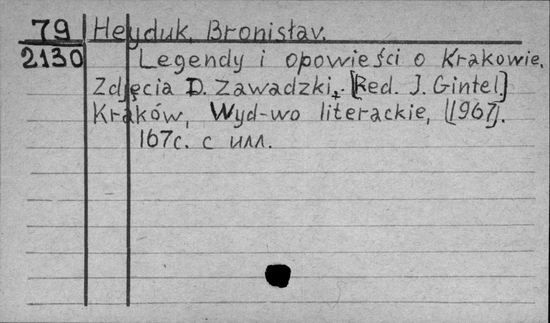 79 Heyduk, Bronisłav.
2130 Legendy i opowieści o Krakowie.
Zdjęcia D. Zawadzki. [Red. J. Gintel]
Kraków, Wyd-wo literackie, [1967].
167с. с илл.